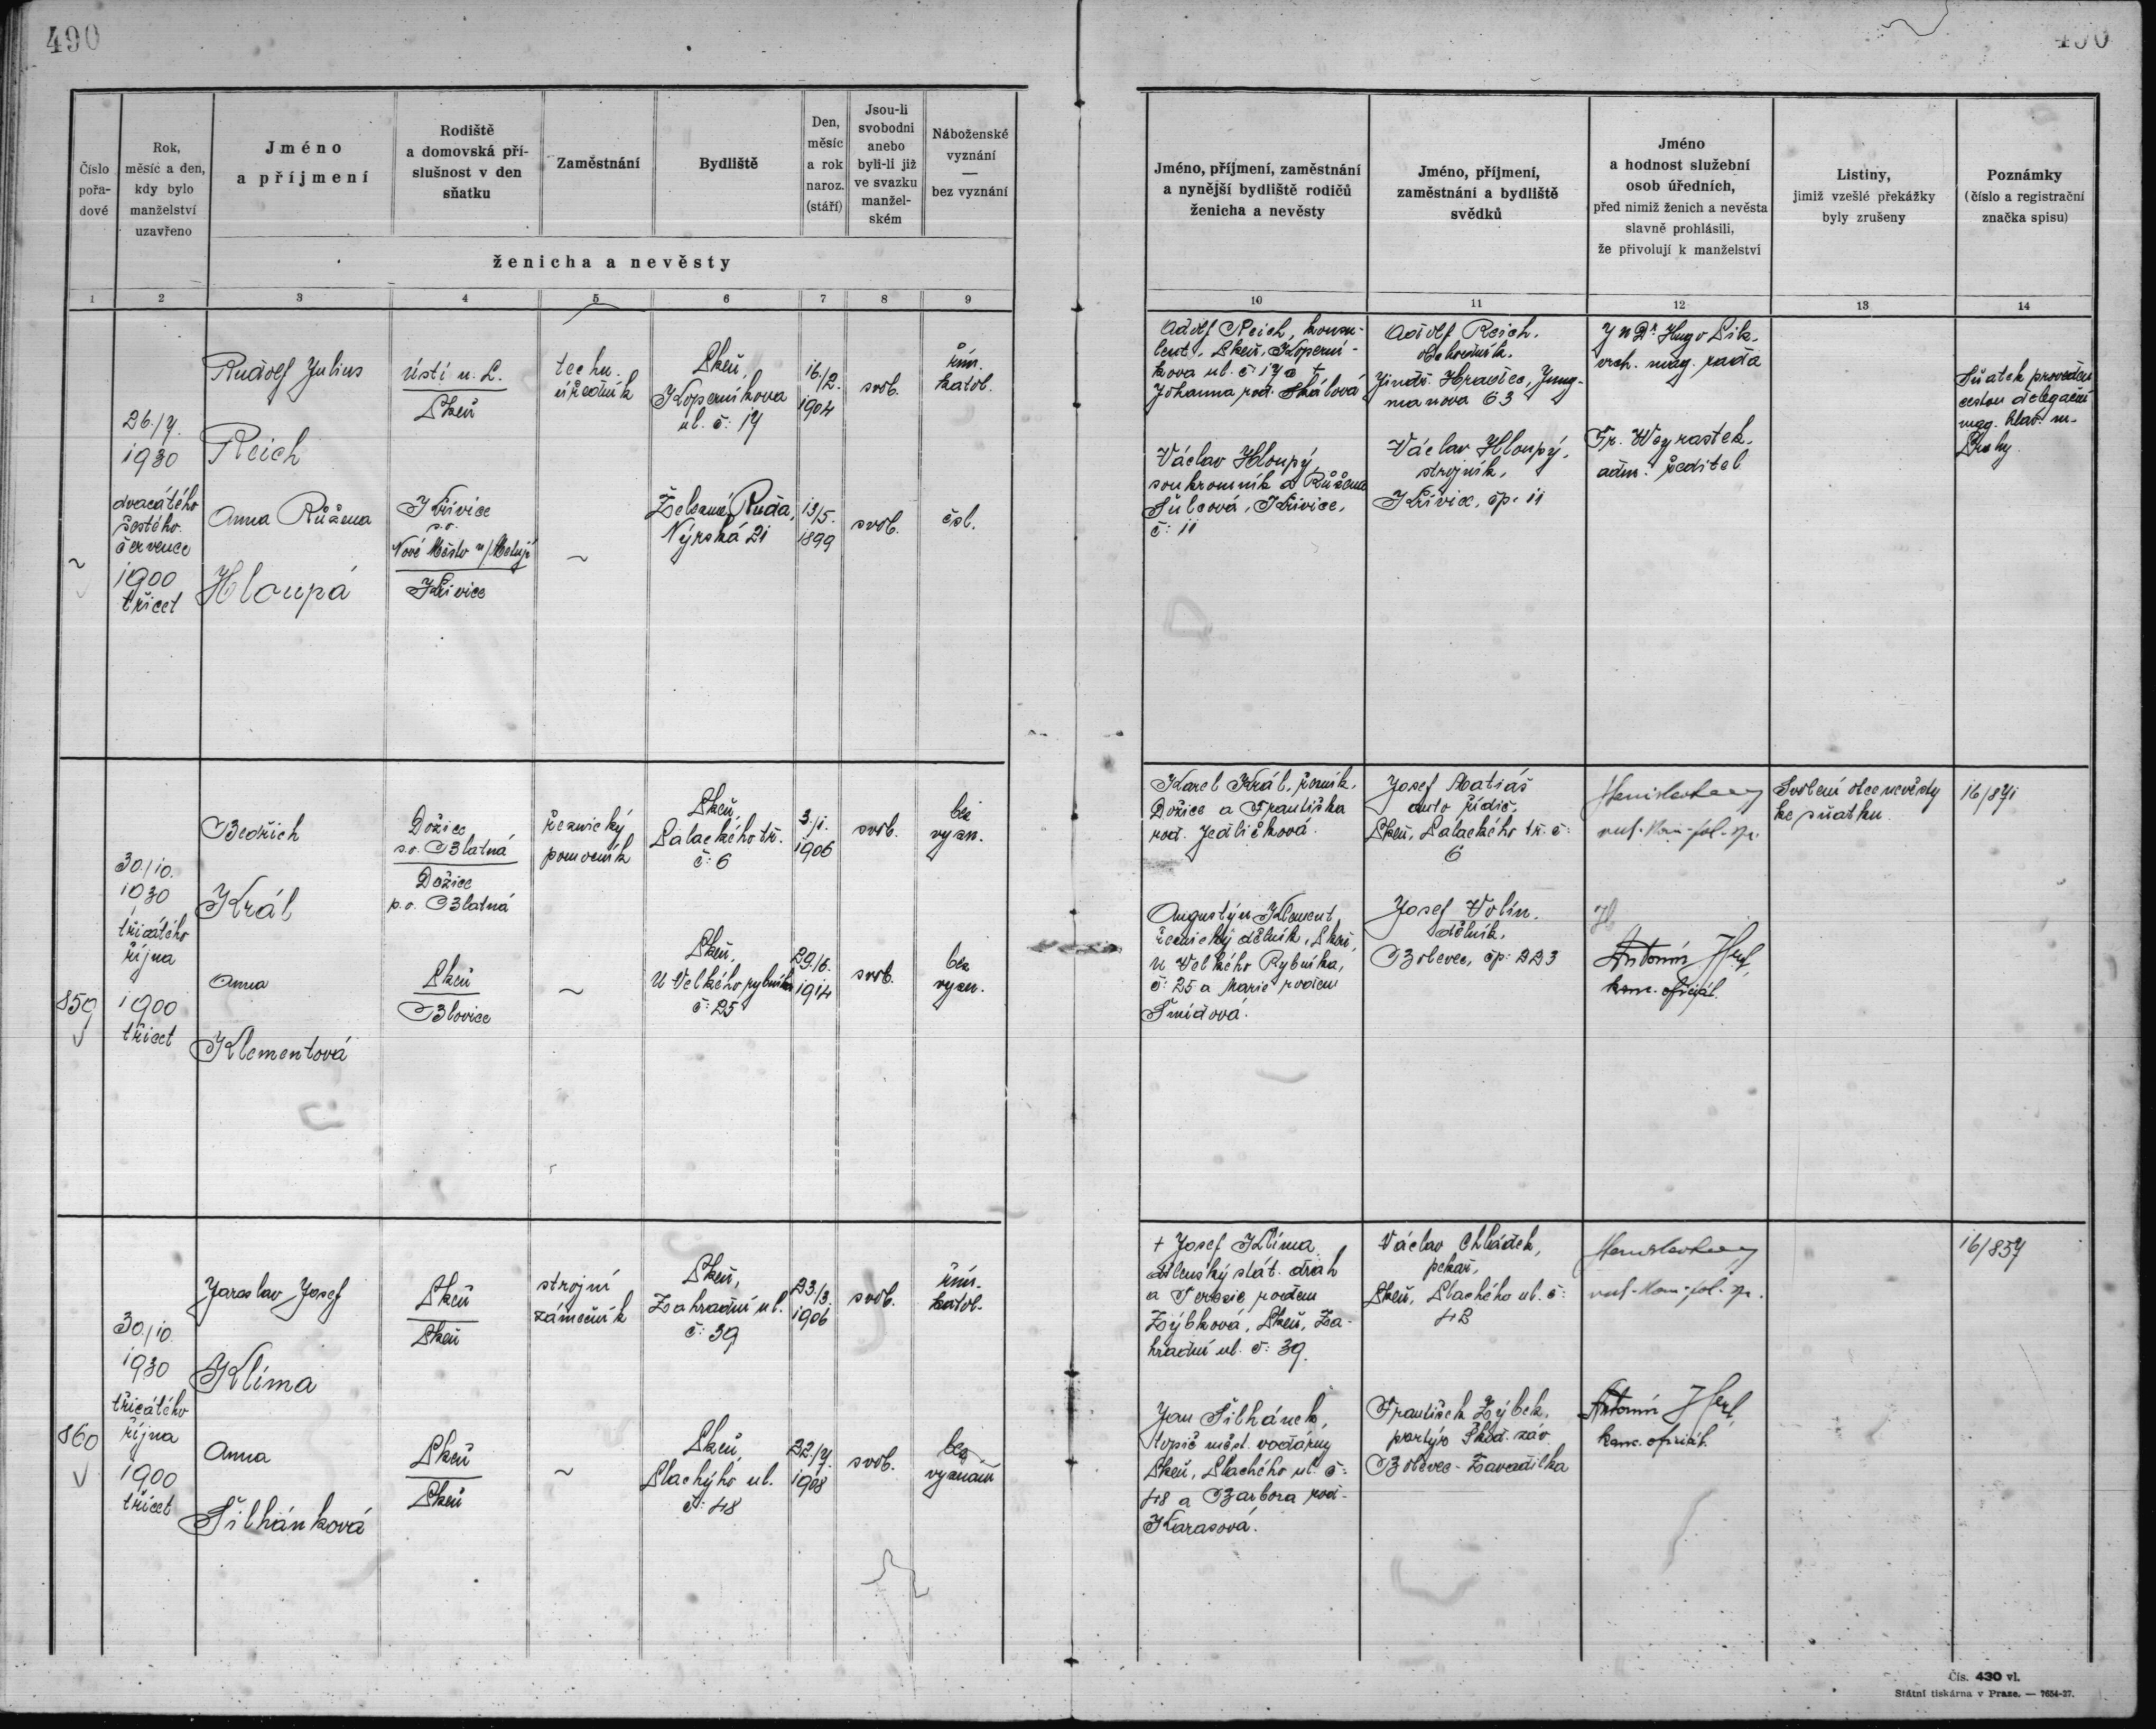 490
490
Číslo
pořa-
dové
Rok,
měsíc a den,
kdy bylo
manželství
uzavřeno
Jméno
a příjmení
Rodiště
a domovská pří-
slušnost v den
sňatku
Zaměstnání
Bydliště
Den,
měsíc
a rok
naroz.
(stáří)
Jsou-li
svobodni
anebo
byli-li již
ve svazku
manžel-
ském
Náboženské
vyznání
—
bez vyznání
ženicha a nevěsty
Jméno, příjmení, zaměstnání
a nynější bydliště rodičů
ženicha a nevěsty
Jméno, příjmení,
zaměstnání a bydliště
svědků
Jméno
a hodnost služební
osob úředních,
před nimiž ženich a nevěsta
slavně prohlásili,
že přivolují k manželství
Listiny,
jimiž vzešlé překážky
byly zrušeny
Poznámky
(číslo a registrační
značka spisu)
1 2 3 4 5 6 7 8 9 10 11 12 13 14
26./7.
1930
dvacátého
šestého
července
1900
třicet
Rudolf Julius
Reich
Ústí n. L.
Plzeň
techn.
úředník
Plzeň,
Koperníkova
ul. č: 17
16./2.
1904
svob.
řím.
katol.
Anna Růžena
Hloupá
Křivice
s.o.
Nové Město n/Metují
Křivice
~
Železná Ruda,
Nýrská 21
13/5.
1899
svob.
čsl.
Adolf Reich, konsu-
lent, Plzeň, Koperní-
kova ul. č. 17 a †
Johanna rod. Skálová
Václav Hloupý
soukromník a Růžena
Šulcová, Křivice,
č: 11
Adolf Reich,
obchodník,
Jindř. Hradec, Jung-
manova 63
Václav Hloupý,
strojník,
Křivice, čp. 11
JUDr. Hugo
vrch. mag. rada
Fr.
adm. ředitel
Sňatek proveden
cestou delegační
mag. hlav. m.
Prahy
859
30./10.
1930
třicátého
října
1900
třicet
Bedřich
Král
Dožice
s.o. Blatná
Dožice
p.o. Blatná
řeznický
pomocník
Plzeň,
Palackého tř.
č: 6
3./1.
1906
svob.
bez
vyzn.
Anna
Klementová
Plzeň
Blovice
~
Plzeň,
U Velkého rybníka
č: 25
29./6.
1914
svob.
bez
vyzn.
Karel Král, řezník,
Dožice a Františka
rod. Jedličková.
Augustýn Klement,
řeznický dělník, Plzeň,
U Velkého Rybníka,
č: 25 a Marie rodem
Šmídová.
Josef Matiáš
auto řidič,
Plzeň, Palackého tř. č:
6
Josef Volín,
dělník,
Bolevec, čp: 223
Antonín
kanc. oficiál.
Svolení otce nevěsty
ke sňatku
16/871
860
30./10.
1930
třicátého
října
1900
třicet
Jaroslav Josef
Klíma
Plzeň
Plzeň
strojní
zámečník
Plzeň,
Zahradní ul.
č: 39
23/3.
1906
svob.
řím.
katol.
Anna
Šilhánková
Plzeň
Plzeň
~
Plzeň,
Plachého ul.
č: 48
22./7.
1908
svob.
bez
vyznání
† Josef Klíma
dílenský stát. drah
a Terezie rodem
Zýbková, Plzeň, Za-
hradní ul. č: 39.
Jan Šilhánek,
topič měst. vodárny
Plzeň, Plachého ul. č:
48 a Barbora rod.
Karasová.
Václav Chládek,
pekař,
Plzeň, Plachého ul. č:
42
František Zýbek,
portýr Škod. záv.
Bolevec-Zavadilka
Antonín
kanc. oficiál.
16/857
Čís. 430 vl.
Státní tiskárna v Praze. — 7654-27.